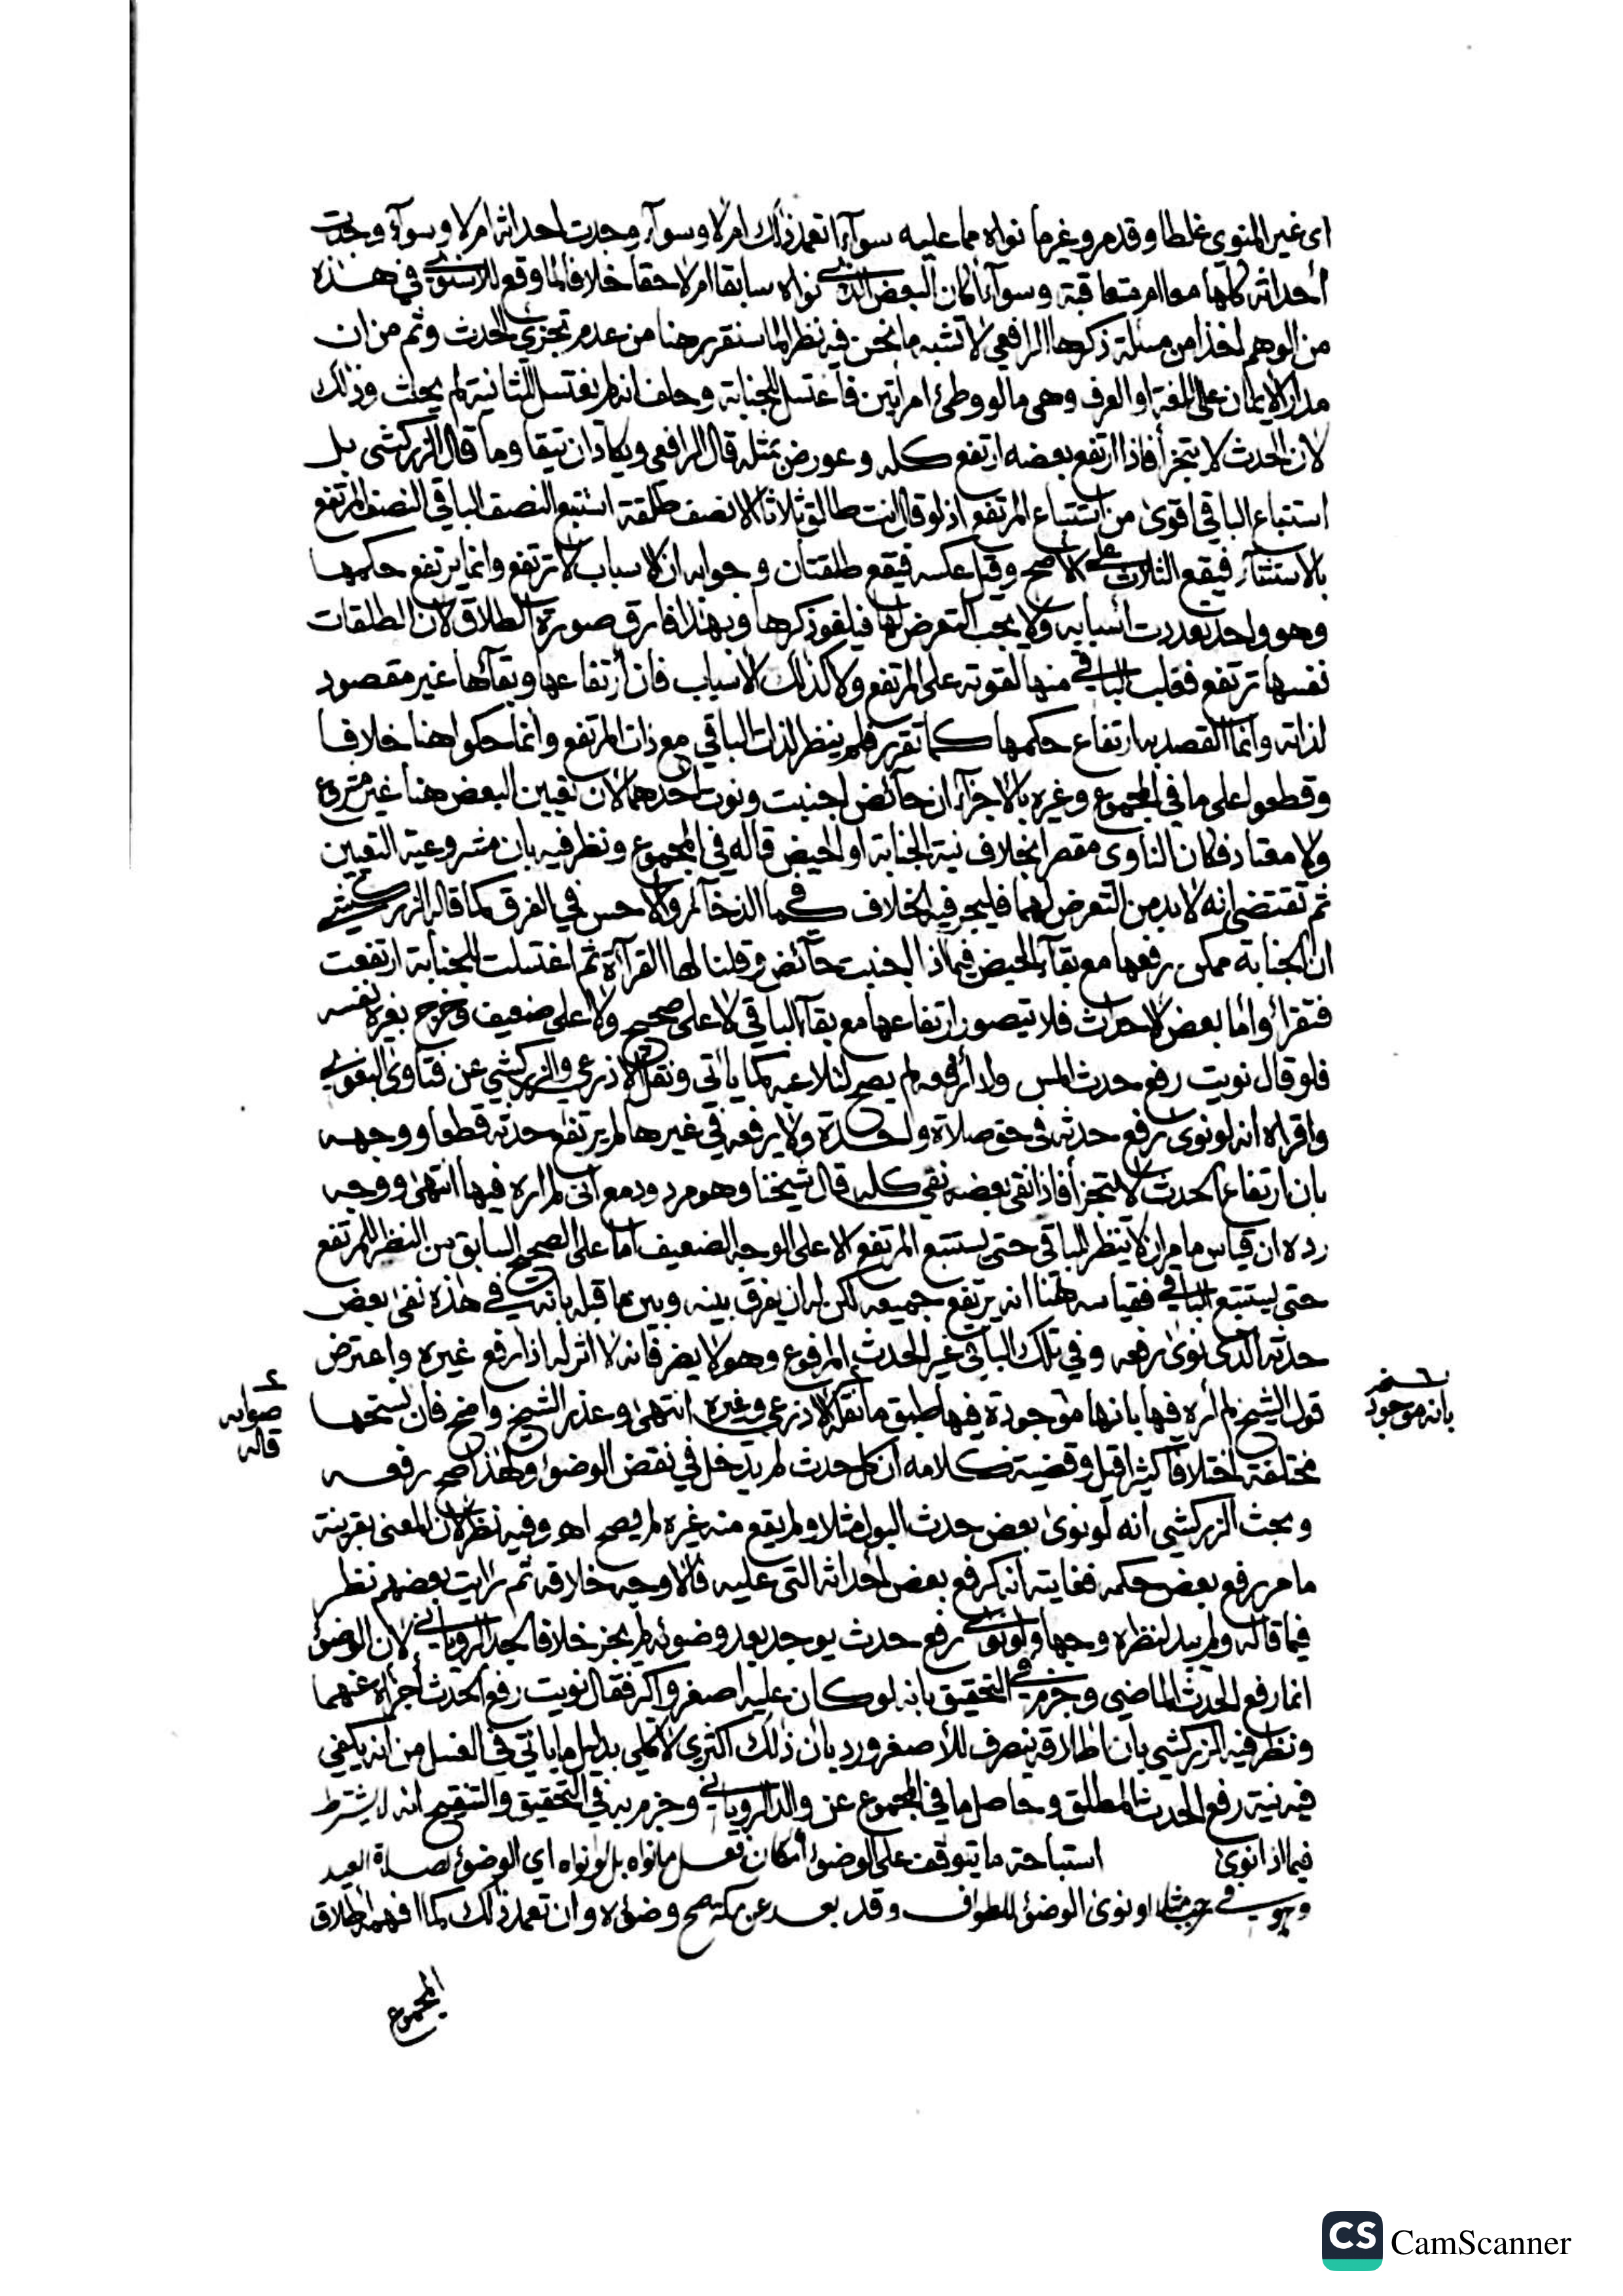 اى غير المنوي غلطا وقد مر وغير ما نواه مما عليه سوآء اتعمد ذلك ام لا وسوآء وجدت احداثه ام لا وسوآء وجدت
أحداثه كلها معا ام متعاقبة وسوآء اكان البعض الذي نواه سابقا ام لاحقا خلافا لما وقع للاسنوي في هذه
من الوهم اخذا من مسئلة ذكرها الرافعي لا تشبه ما نحن فيه نظرا لما سنقرره هنا من عدم تجزي الحدث وثم من ان
مدار الايمان على اللغة او العرف وهى ما لو وطئ امراتين فاغتسل للجنابة وحلف انه لم يغتسل للثانية لم يحنث وذلك
لان الحدث لا يتجزأ فاذا ارتفع بعضه ارتفع كله وعورض بمثله قال الرافعي ويكاد ان يتقاوما قال الزركشي بل
استتباع الباقي اقوى من استتباع المرتفع اذ لو قال انت طالق ثلاثا الا نصف طلقة استتبع النصف الباقي النصف المرتفع
بالاستثنآء فيقع الثلاث على الاصح وقيل عكسه فيقع طلقتان وجوابه ان الاسباب لا ترتفع وانما يرتفع حكمها
وهو واحد تعددت أسبابه ولا يجب التعرض لها فيلغو ذكرها وبهذا فارق صورة الطلاق لان الطلقات
نفسها ترتفع فغلب الباقي منها لقوته على المرتفع ولا كذلك الاسباب فان ارتفاعها وبقآئها غير مقصود
لذاته وانما القصد به ارتفاع حكمها كما تقرر فلم ينظر لذات الباقي مع ذات المرتفع وانما حكوا هنا خلافا
وقطعوا على ما في المجموع وغيره بالاجزآء ان حآئض اجنبت ونوت احدهما لان تعيين البعض هنا غير مشروع
ولا معتاد فكان الناوى مقصرا بخلاف نية الجنابة او الحيض قاله في المجموع ونظر فيه بان مشروعية التعيين
ثم تقتضى انه لا بد من التعرض لهما فليجر فيه الخلاف والاحسن في الفرق كما قاله الزركشي
ان الجنابة ممكن رفعها مع بقآء الحيض فيما اذا اجنبت حآئض وقلنا لها القرآءة ثم اغتسلت للجنابة ارتفعت
فتقرأ وأما بعض الاحداث فلا يتصور ارتفاعها مع بقآء الباقي لا على صحيح ولا على ضعيف وخرج بغيره نفسه
فلو قال نويت رفع حدث المس ولا أرفعه لم يصح لتلاعبه كما يأتي ونقل الاذرعي والزركشي عن فتاوى البغوي
واقراه انه لو نوى رفع حدثه فى حق صلاة واحدة ولا يرفعه في غيرها لم يرتفع حدثه قطعا ووجهه
بان ارتفاع الحدث لا يتجزأ فاذا نفى بعضه نفي كله قال شيخنا وهو مردود مع أنى لم اره فيها انتهى ووجه
رده ان قياس ما مر ان لا ينظر للباقي حتى يستتبع المرتفع الا على الوجه الضعيف اما على الصحيح السابق من النظر للمرتفع
حتى يستتبع الباقي فقياسه هنا انه يرتفع جميعه لكن له ان يفرق بينه وبين ما قبله بانه في هذه نفى بعض
حدثه الذى نوى رفعه وفي تلك الباقي غير الحدث المرفوع وهو لا يضر فانه لا اثر له اذا رفع غيره واعترض
قول الشيخ لم أره فيها بانها موجودة فيها طبق ما نقله الاذرعي وغيره انتهى وعذر الشيخ واضح فان نسخها
بانه موجود
صوابه
قاله
مختلفة اختلافا كثيرا قيل وقضية كلامه ان كل حدث لم يدخل في نقض الوضوء ولهذا صح رفعه
وبحث الزركشي انه لو نوى بعض حدث البول مثلا ولم يقع منه غيره لم يصح اهو وفيه نظر لان المعنى بقرينة
ما مر برفع بعض حكمه فغايته انه كرفع بعض أحداثه التى عليه فالاوجه خلافه ثم رايت بعضهم نظر
فيما قاله ولم يبد لنظره وجها ولو نوى رفع حدث يوجد بعد وضوئه لم يجز خلافا لجد الروياني لان الوضوء
انما رفع الحدث الماضي وجزم في التحقيق بانه لو كان عليه اصغر واكبر فقال نويت رفع الحدث أجزأه عنهما
ونظر فيه الزركشي بان اطلاقه ينصرف للأصغر ورد بان ذلك اكثري لا كلي بدليل ما يأتي في الغسل من انه يكفي
فيه نية رفع الحدث المطلق وحاصل ما في المجموع عن والد الروياني وجزم به في التحقيق والتنقيح انه لا يشترط
فيما اذا نوى استباحة ما يتوقف على الوضوء امكان فعل ما نواه بل لو نواه اى الوضوء لصلاة العيد
وهو في رجب مثلا او نوى الوضوء للطواف وقد بعد عن مكة صح وضوئه وان تعمد ذلك كما افهمه اطلاق
المجموع
CS CamScanner